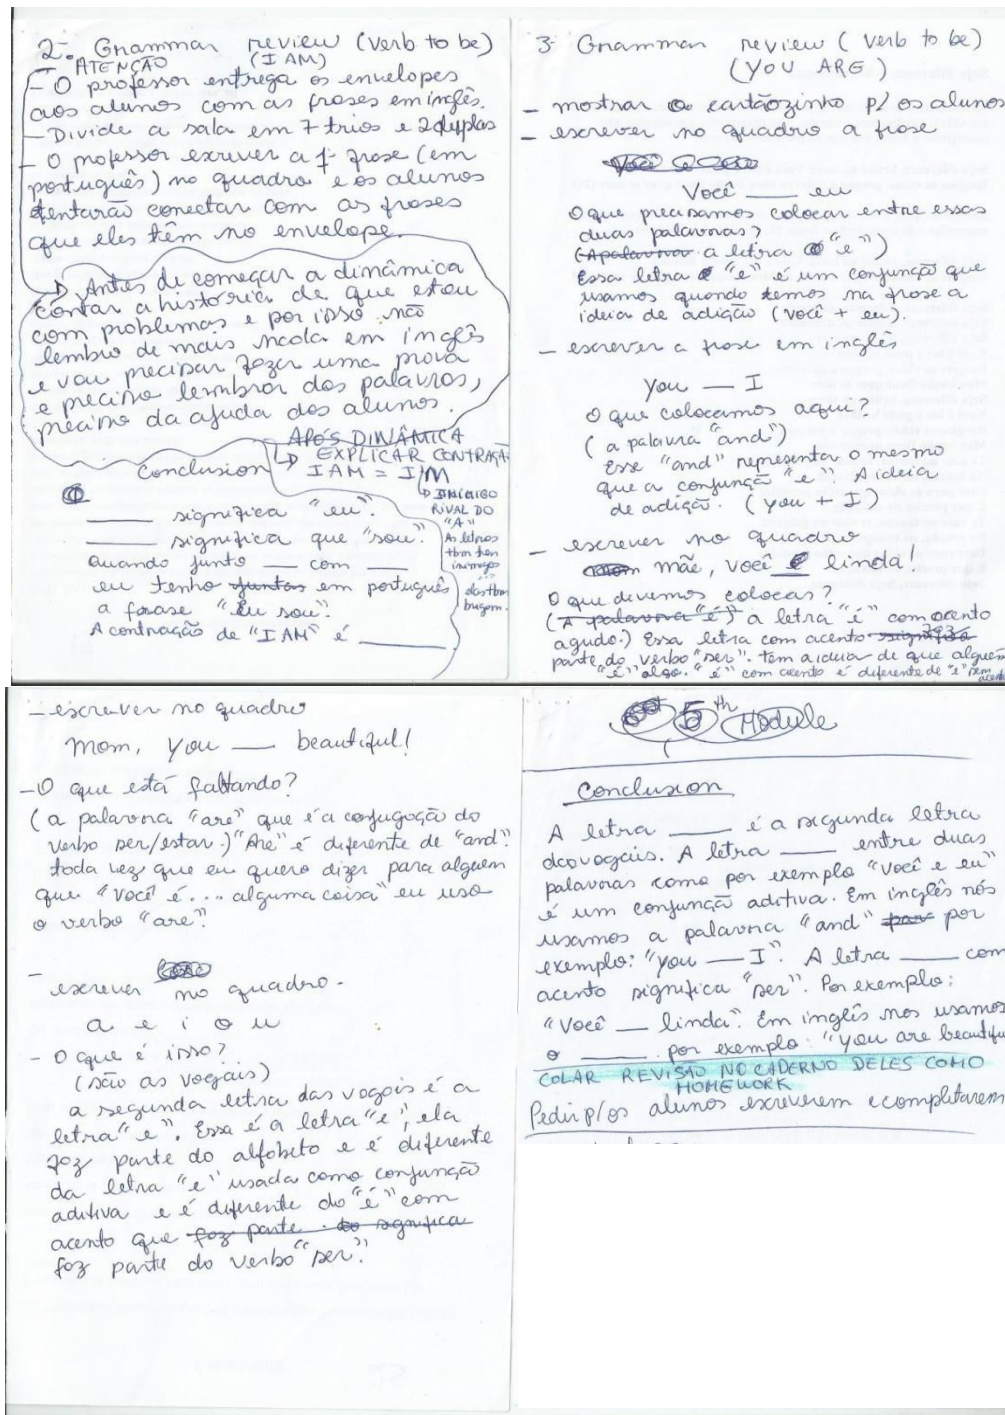 2- Grammar review (verb to be)
ATENÇÃO (I AM)
- O professor entrega os envelopes
aos alunos com as frases em inglês.
- Divide a sala em 7 trios e 2 duplas
- O professor escrever a 1ª frase (em
português) no quadro e os alunos
tentarão conectar com as frases
que eles têm no envelope.
Antes de começar a dinâmica
contar a história de que estou
com problemas e por isso não
lembro de mais nada em inglês
e vou precisar fazer uma prova
e preciso lembrar das palavras,
preciso da ajuda dos alunos.
APÓS DINÂMICA
EXPLICAR CONTRAÇÃ
I AM = I'M
INIMIGO
RIVAL DO
"A"
As letras
tbm tem
inimigos
...
elas tbm
brigam.
Conclusion
____ significa "eu".
____ significa que "sou".
Quando junto ___ com ___
eu tenho juntas em português
a frase "Eu sou".
A contração de "I AM" é ____
3- Grammar review (verb to be)
(YOU ARE)
- mostrar o cartãozinho p/ os alunos
- escrever no quadro a frase
Você ____ eu
O que precisamos colocar entre essas
duas palavras?
(A palavra a letra "e")
Essa letra "e" é um conjunção que
usamos quando temos na frase a
ideia de adição (você + eu).
- escrever a frase em inglês
you __ I
O que colocamos aqui?
(a palavra "and")
Esse "and" representa o mesmo
que a conjunção "e". A ideia
de adição. (you + I)
- escrever no quadro
mãe, você é linda!
O que devemos colocar?
(A palavra "é") a letra "é" com acento
agudo.) Essa letra com acento significa faz
parte do verbo "ser". Tem a ideia de que alguém
"é" algo. "é" com acento é diferente de "e" sem
acento
- escrever no quadro
Mom, you ___ beautiful!
- O que está faltando?
(a palavra "are" que é a conjugação do
verbo ser/estar.) "Are" é diferente de "and".
toda vez que eu quero dizer para alguém
que "você é... alguma coisa" eu uso
o verbo "are".
-
escrever no quadro.
a e i o u
- O que é isso?
(são as vogais)
a segunda letra das vogais é a
letra "e". Essa é a letra "e", ela
faz parte do alfabeto e é diferente
da letra "e" usada como conjunção
aditiva e é diferente do "é" com
acento que faz parte do significa
faz parte do verbo "ser".
5th Module
Conclusion
A letra ____ é a segunda letra
das vogais. A letra ____ entre duas
palavras como por exemplo "você e eu"
é um conjunção aditiva. Em inglês nós
usamos a palavra "and" para por
exemplo: "you ___ I". A letra ____ com
acento significa "ser". Por exemplo:
"Você __ linda". Em inglês nos usamos
o ____ por exemplo: "you are beautifu
COLAR REVISÃO NO CADERNO DELES COMO
HOMEWORK
Pedir p/ os alunos escreverem e completarem